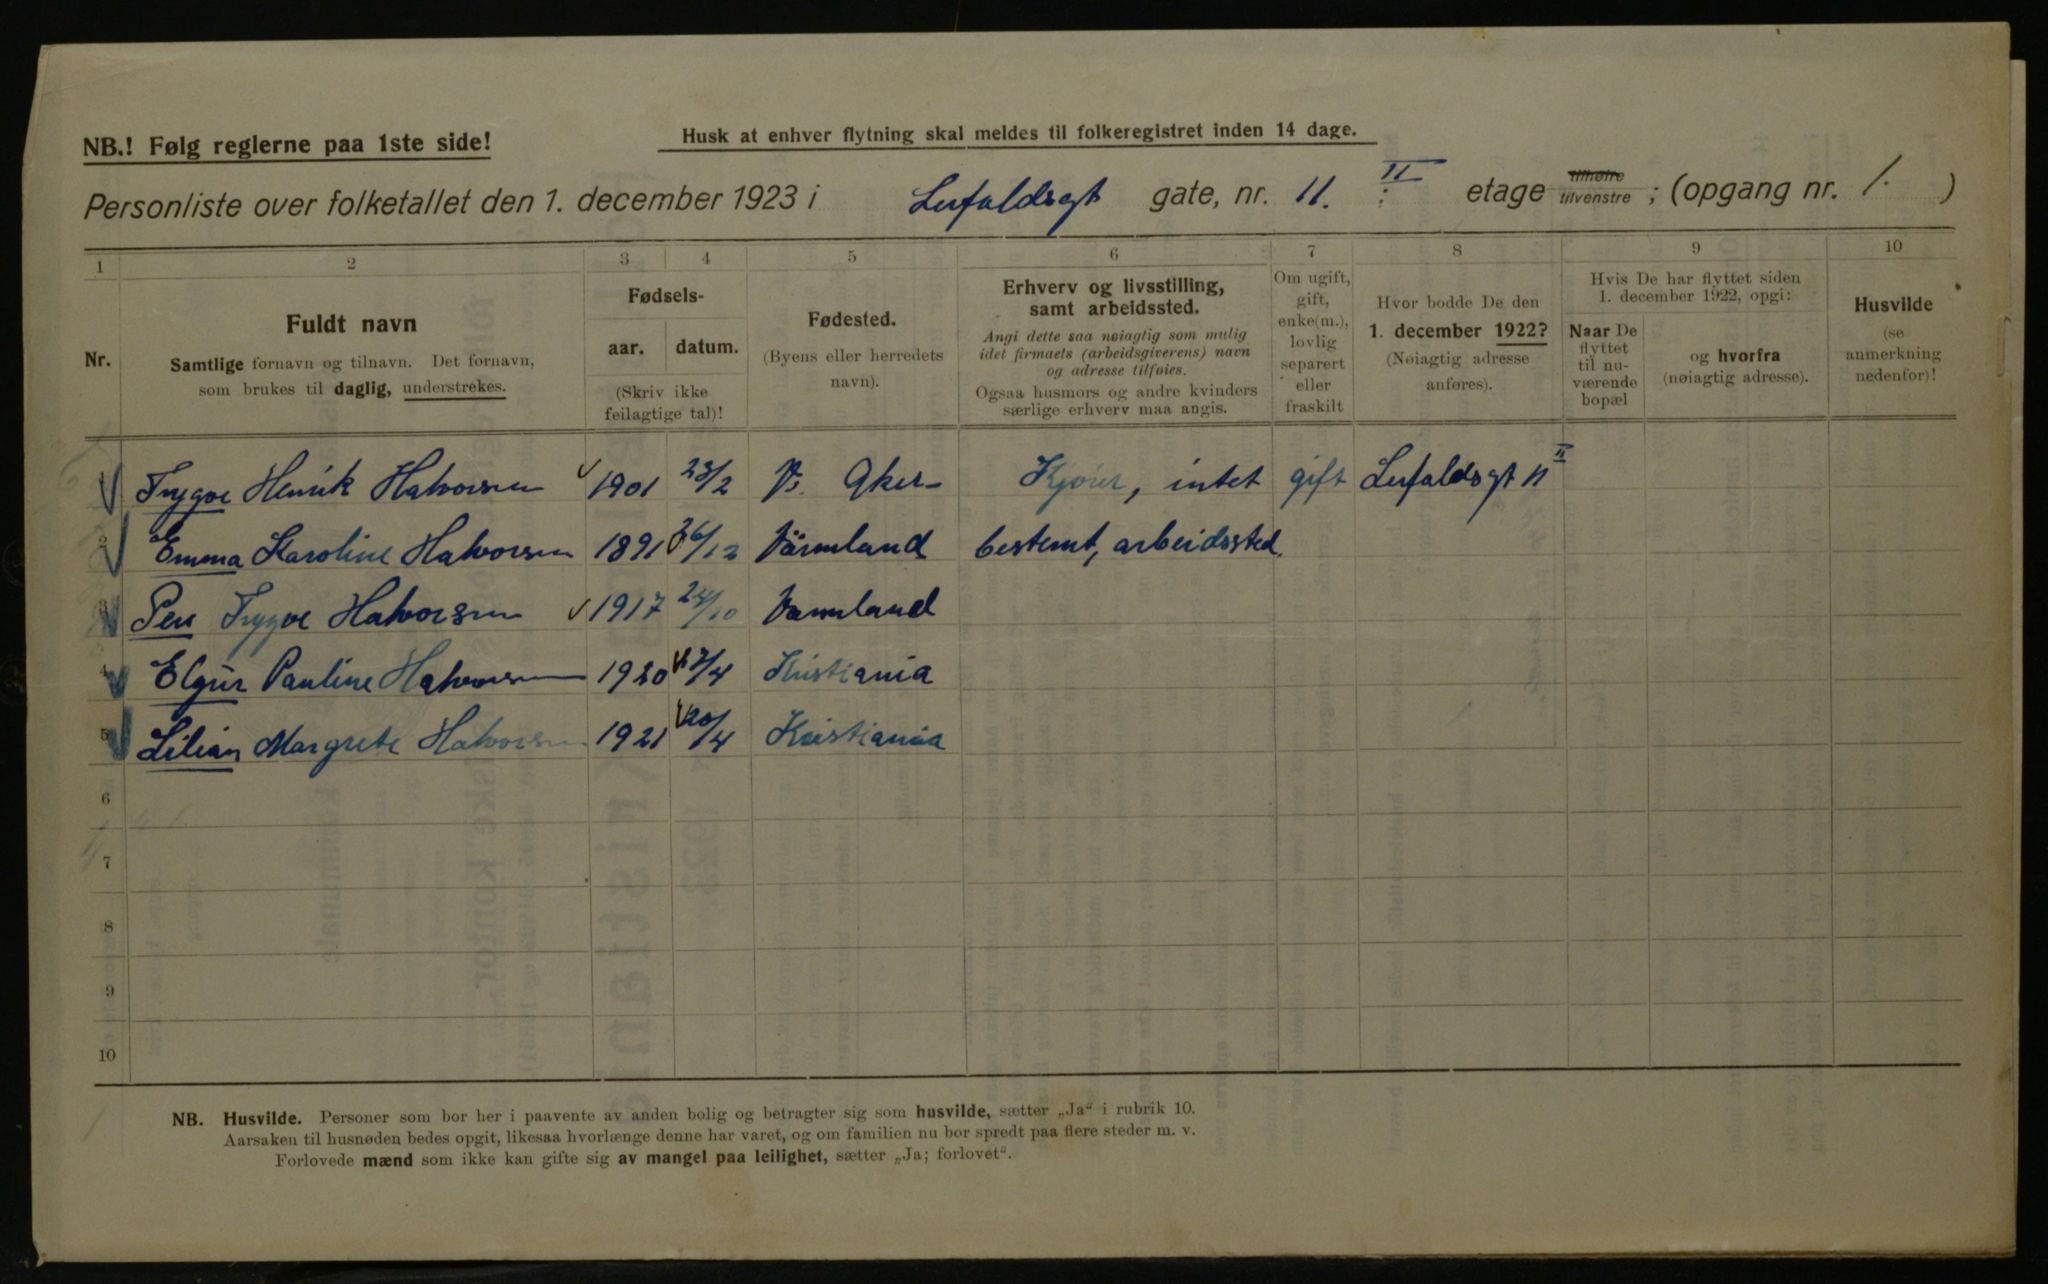 NB.! Følg reglerne paa 1ste side!
Husk at enhver flytning skal meldes til folkeregistret inden 14 dage.
Personliste over folketallet den 1. december 1923 i Lufaldsgt gate, nr. 11. II: etage tilhøire tilvenstre; (opgang nr. 1.)
1 2 3 4 5 6 7 8 9 10
Nr.
Fuldt navn
Samtlige fornavn og tilnavn. Det fornavn,
som brukes til daglig, understrekes.
Fødsels-
aar. datum.
(Skriv ikke
feilagtige tal)!
Fødested.
(Byens eller herredets
navn).
Erhverv og livsstilling,
samt arbeidssted.
Angi dette saa nøiagtig som mulig
idet firmaets (arbeidsgiverens) navn
og adresse tilføies.
Ogsaa husmors og andre kvinders
særlige erhverv maa angis.
Om ugift,
gift,
enke(m.),
lovlig
separert
eller
fraskilt
Hvor bodde De den
1. december 1922?
(Nøiagtig adresse
anføres).
Hvis De har flyttet siden
1. december 1922, opgi:
Naar De
flyttet
til nu-
værende
bopæl
og hvorfra
(nøiagtig adresse).
Husvilde
(se
anmerkning
nedenfor)!
1 Trygve Henrik Halvorsen 1901 23/2 V. Aker Kjører, intet gift Lufaldsgt 11 II
2 Emma Karoline Halvorsen 1891 26/12 Värmland bestemt, arbeidssted.
3 Per Trygve Halvorsen 1917 24/10 Varmland
4 Pauline Halvorsen 1920 /4 Kristiania
5 Lilian Margrete Halvorsen 1921 20/4 Kristiania
6
7
8
9
10
NB. Husvilde. Personer som bor her i paavente av anden bolig og betragter sig som husvilde, sætter „Ja" i rubrik 10.
Aarsaken til husnøden bedes opgit, likesaa hvorlænge denne har varet, og om familien nu bor spredt paa flere steder m. v.
Forlovede mænd som ikke kan gifte sig av mangel paa leilighet, sætter „Ja; forlovet".